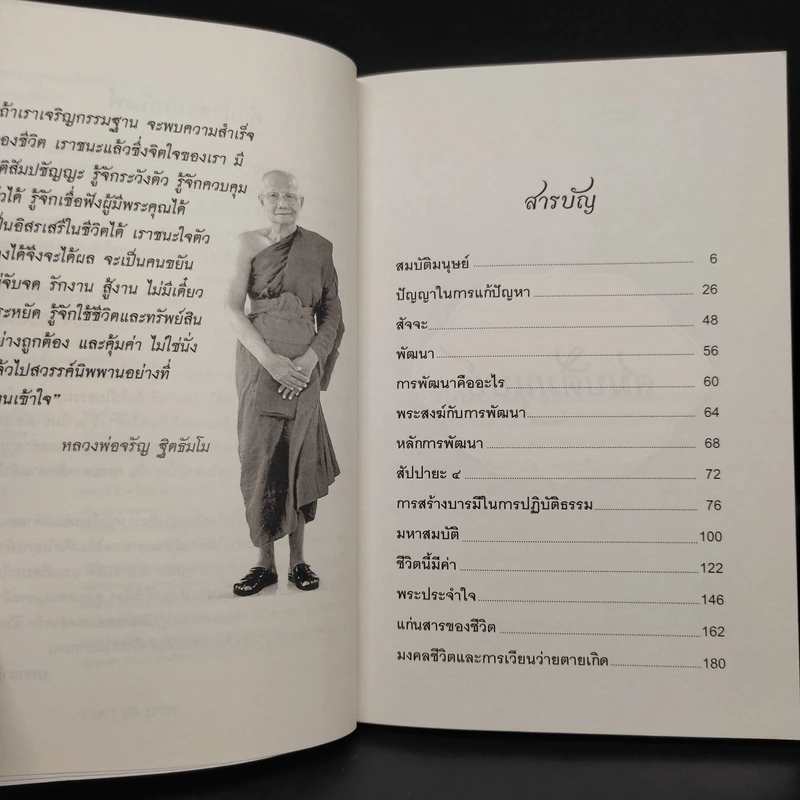 ถ้าเราเจริญกรรมฐาน จะพบความสำเร็จ
องชีวิต เราชนะแล้วซึ่งจิตใจของเรา มี
ติสัมปชัญญะ รู้จักระวังตัว รู้จักควบคุม
ัวได้ รู้จักเชื่อฟังผู้มีพระคุณได้
ป็นอิสรเสรีในชีวิตได้ เราชนะใจตัว
องได้จึงจะได้ผล จะเป็นคนขยัน
จับจด รักงาน สู้งาน ไม่มีเดี๋ยว
ระหยัด รู้จักใช้ชีวิตและทรัพย์สิน
ย่างถูกต้อง และคุ้มค่า ไม่ใช่นั่ง
ล้วไปสวรรค์นิพพานอย่างที่
นเข้าใจ”
หลวงพ่อจรัญ ฐิตธัมโม
สารบัญ
สมบัติมนุษย์ 6
ปัญญาในการแก้ปัญหา 26
สัจจะ 48
พัฒนา 56
การพัฒนาคืออะไร 60
พระสงฆ์กับการพัฒนา 64
หลักการพัฒนา 68
สัปปายะ ๔ 72
การสร้างบารมีในการปฏิบัติธรรม 76
มหาสมบัติ 100
ชีวิตนี้มีค่า 122
พระประจำใจ 146
แก่นสารของชีวิต 162
มงคลชีวิตและการเวียนว่ายตายเกิด 180